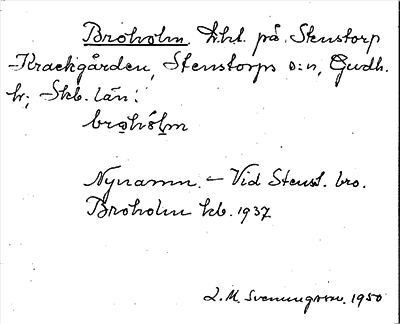 Broholm. Lht. på. Stenstorp
Krackgården, Stenstorps s:n, Gudh.
hr; Skb. län:
brohólm
Nynamn. – Vid Stenst. bro.
Broholm kb. 1937
L. M. Svenungsson. 1950